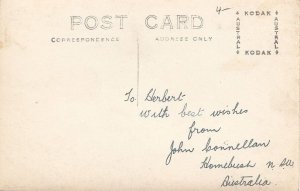 POST CARD
4-
CORRESPONDENCE ADDRESS ONLY
KODAK
AUSTRAL
AUSTRAL
KODAK
To Herbert
With best wishes
from
John Connellan
Homebush N.SW
Australia.